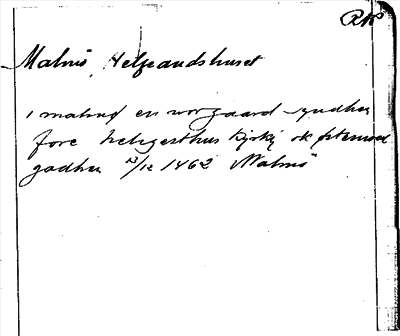 RAP
Malmö, Helgeandshuset
i malmø en worgaard syndhen
fore helgesthus kyrky ok
gadhen 13/12 1462 Malmö